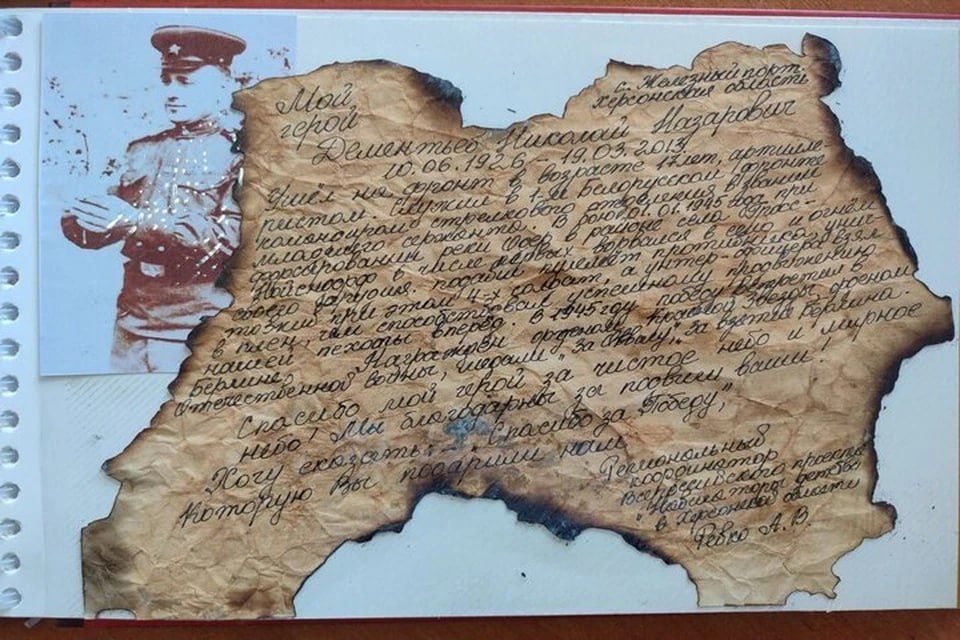 с. Железный порт
Херсонская область
Мой
герой
Дементьев Николай Назарович
10.06.1926 – 19.03.2013
Ушёл на фронт в возрасте 17 лет, артилле-
ристом. Служил в 1-м Белорусском фронте
командиром стрелкового отделения в звании
младшего сержанта. В бою 01.01.1945 года при
форсировании реки Одер в районе села Грос-
Нойендорф в числе первых ворвался в село и огнём
своего оружия подавил пулемёт противника, унич-
тожив при этом 4-х солдат, а унтер-офицера взял
в плен, чем способствовал успешному продвижению
нашей пехоты вперёд. В 1945 году победу встретил в
Берлине. Награжден орденом Красной Звезды, орденом
Отечественной войны, медали "За отвагу", "За взятие Берлина.
Спасибо мой герой за чистое небо и мирное
небо! Мы благодарны за подвиги ваши!
Хочу сказать: – "Спасибо за Победу,
Которую Вы подарили нам"
Региональный
координатор
Всероссийского проекта
"Навигаторы детства
в Херсонской области
Ревко А. В.